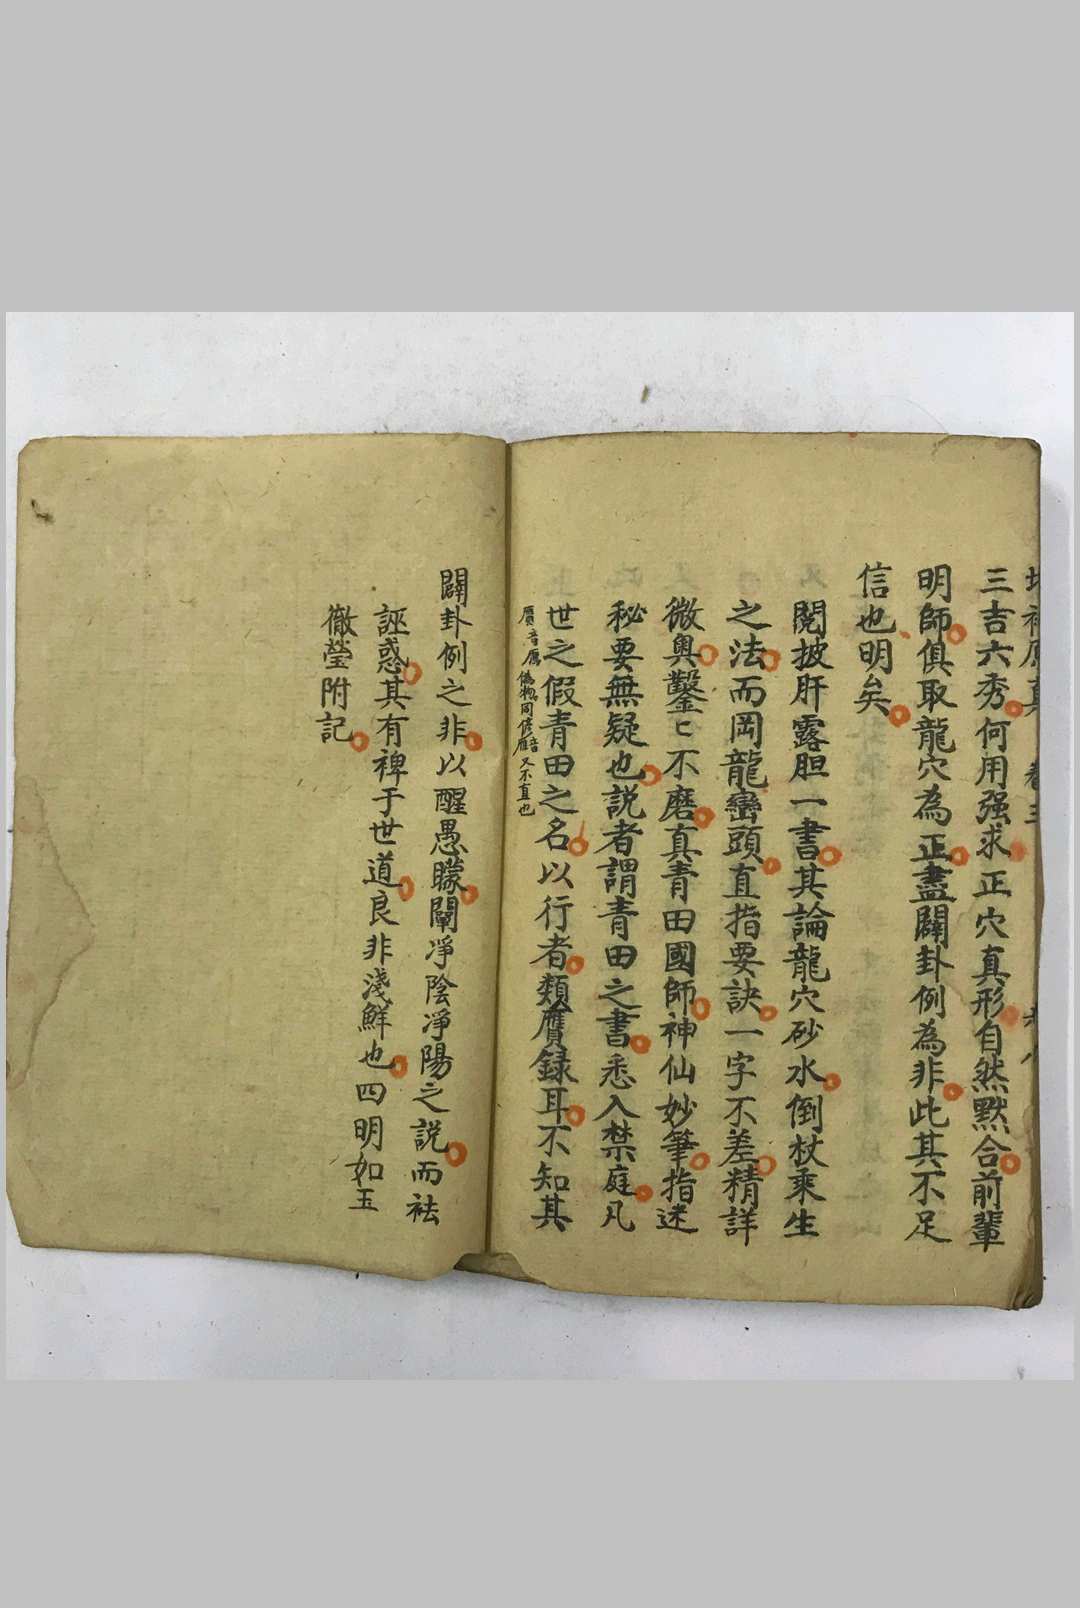 三吉六秀何用强求正穴真形自然默合前輩
明師俱取龍穴為正盡闢卦例為非此其不足
信也明矣
閱披肝露胆一書其論龍穴砂水倒杖乘生
之法而岡龍巒頭直指要訣一字不差精詳
微奧鑿〻不磨真青田國師神仙妙筆指迷
秘要無疑也説者謂青田之書悉入禁庭凡
世之假青田之名以行者類贗録耳不知其
贗音雁偽物同僞音雁又不直也
闢卦例之非以醒愚矇闡凈陰凈陽之説而袪
誣惑其有裨于世道良非淺鮮也四明如玉
徹瑩附記